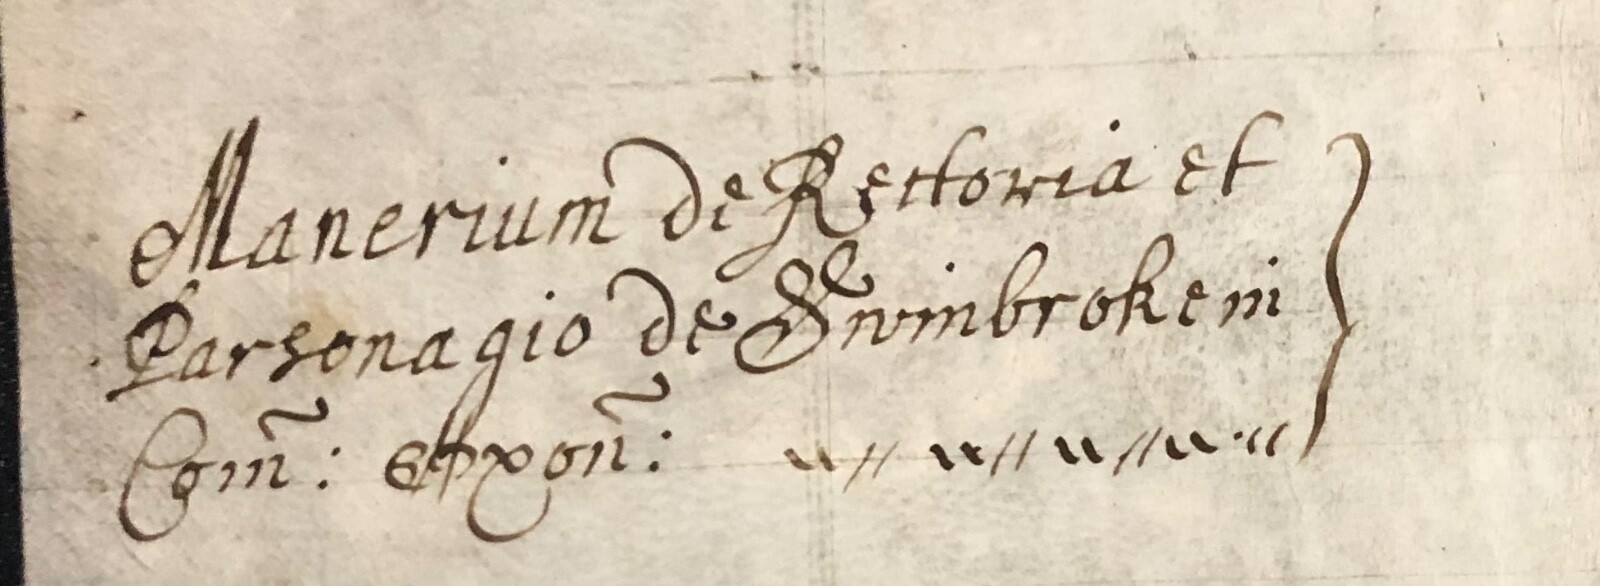 Manerium de Rectoria et
Parsonagio de Swinbroke in
Com̃: Oxon̄: